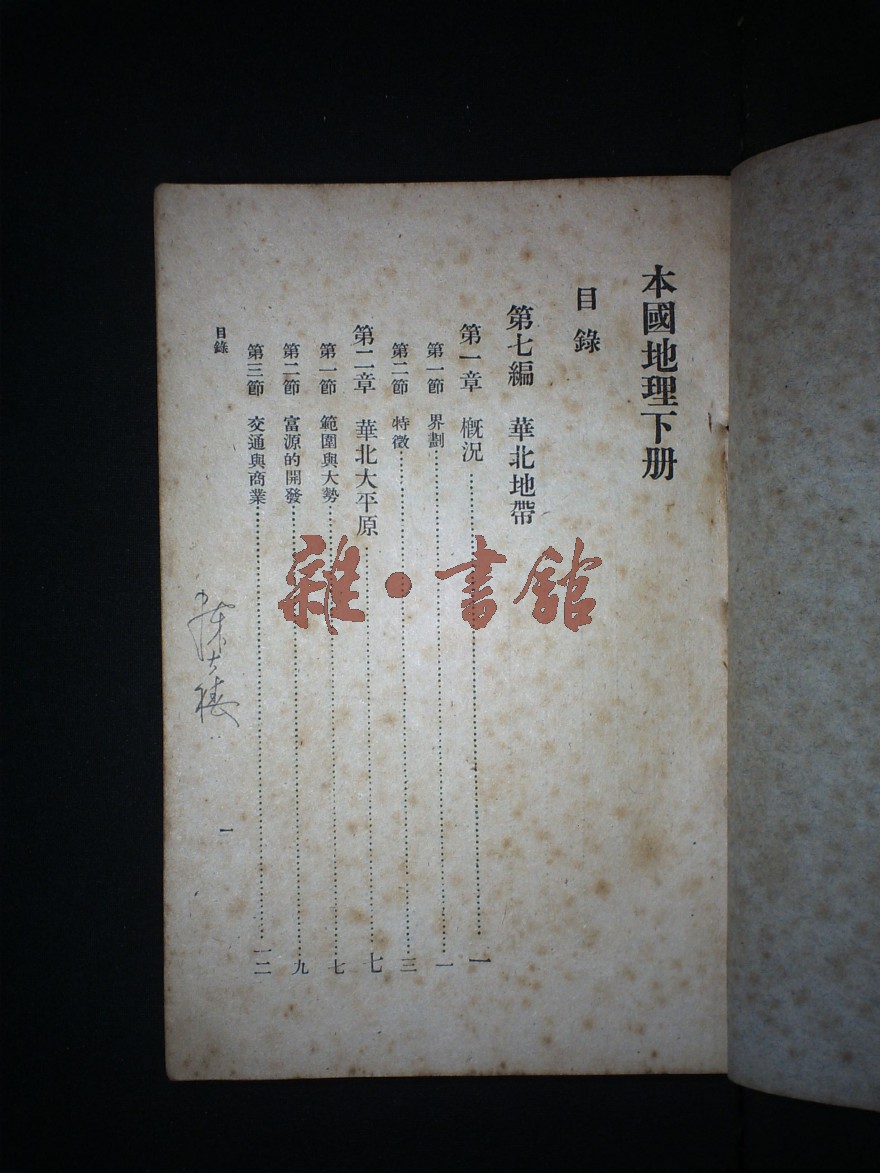 本國地理下册
目錄
第七編　華北地帶
第一章　概況……一
第一節　界劃……一
第二節　特徵……三
第二章　華北大平原……七
第一節　範圍與大勢……七
第二節　富源的開發……九
第三節　交通與商業……一二
目錄　一
雜·書館